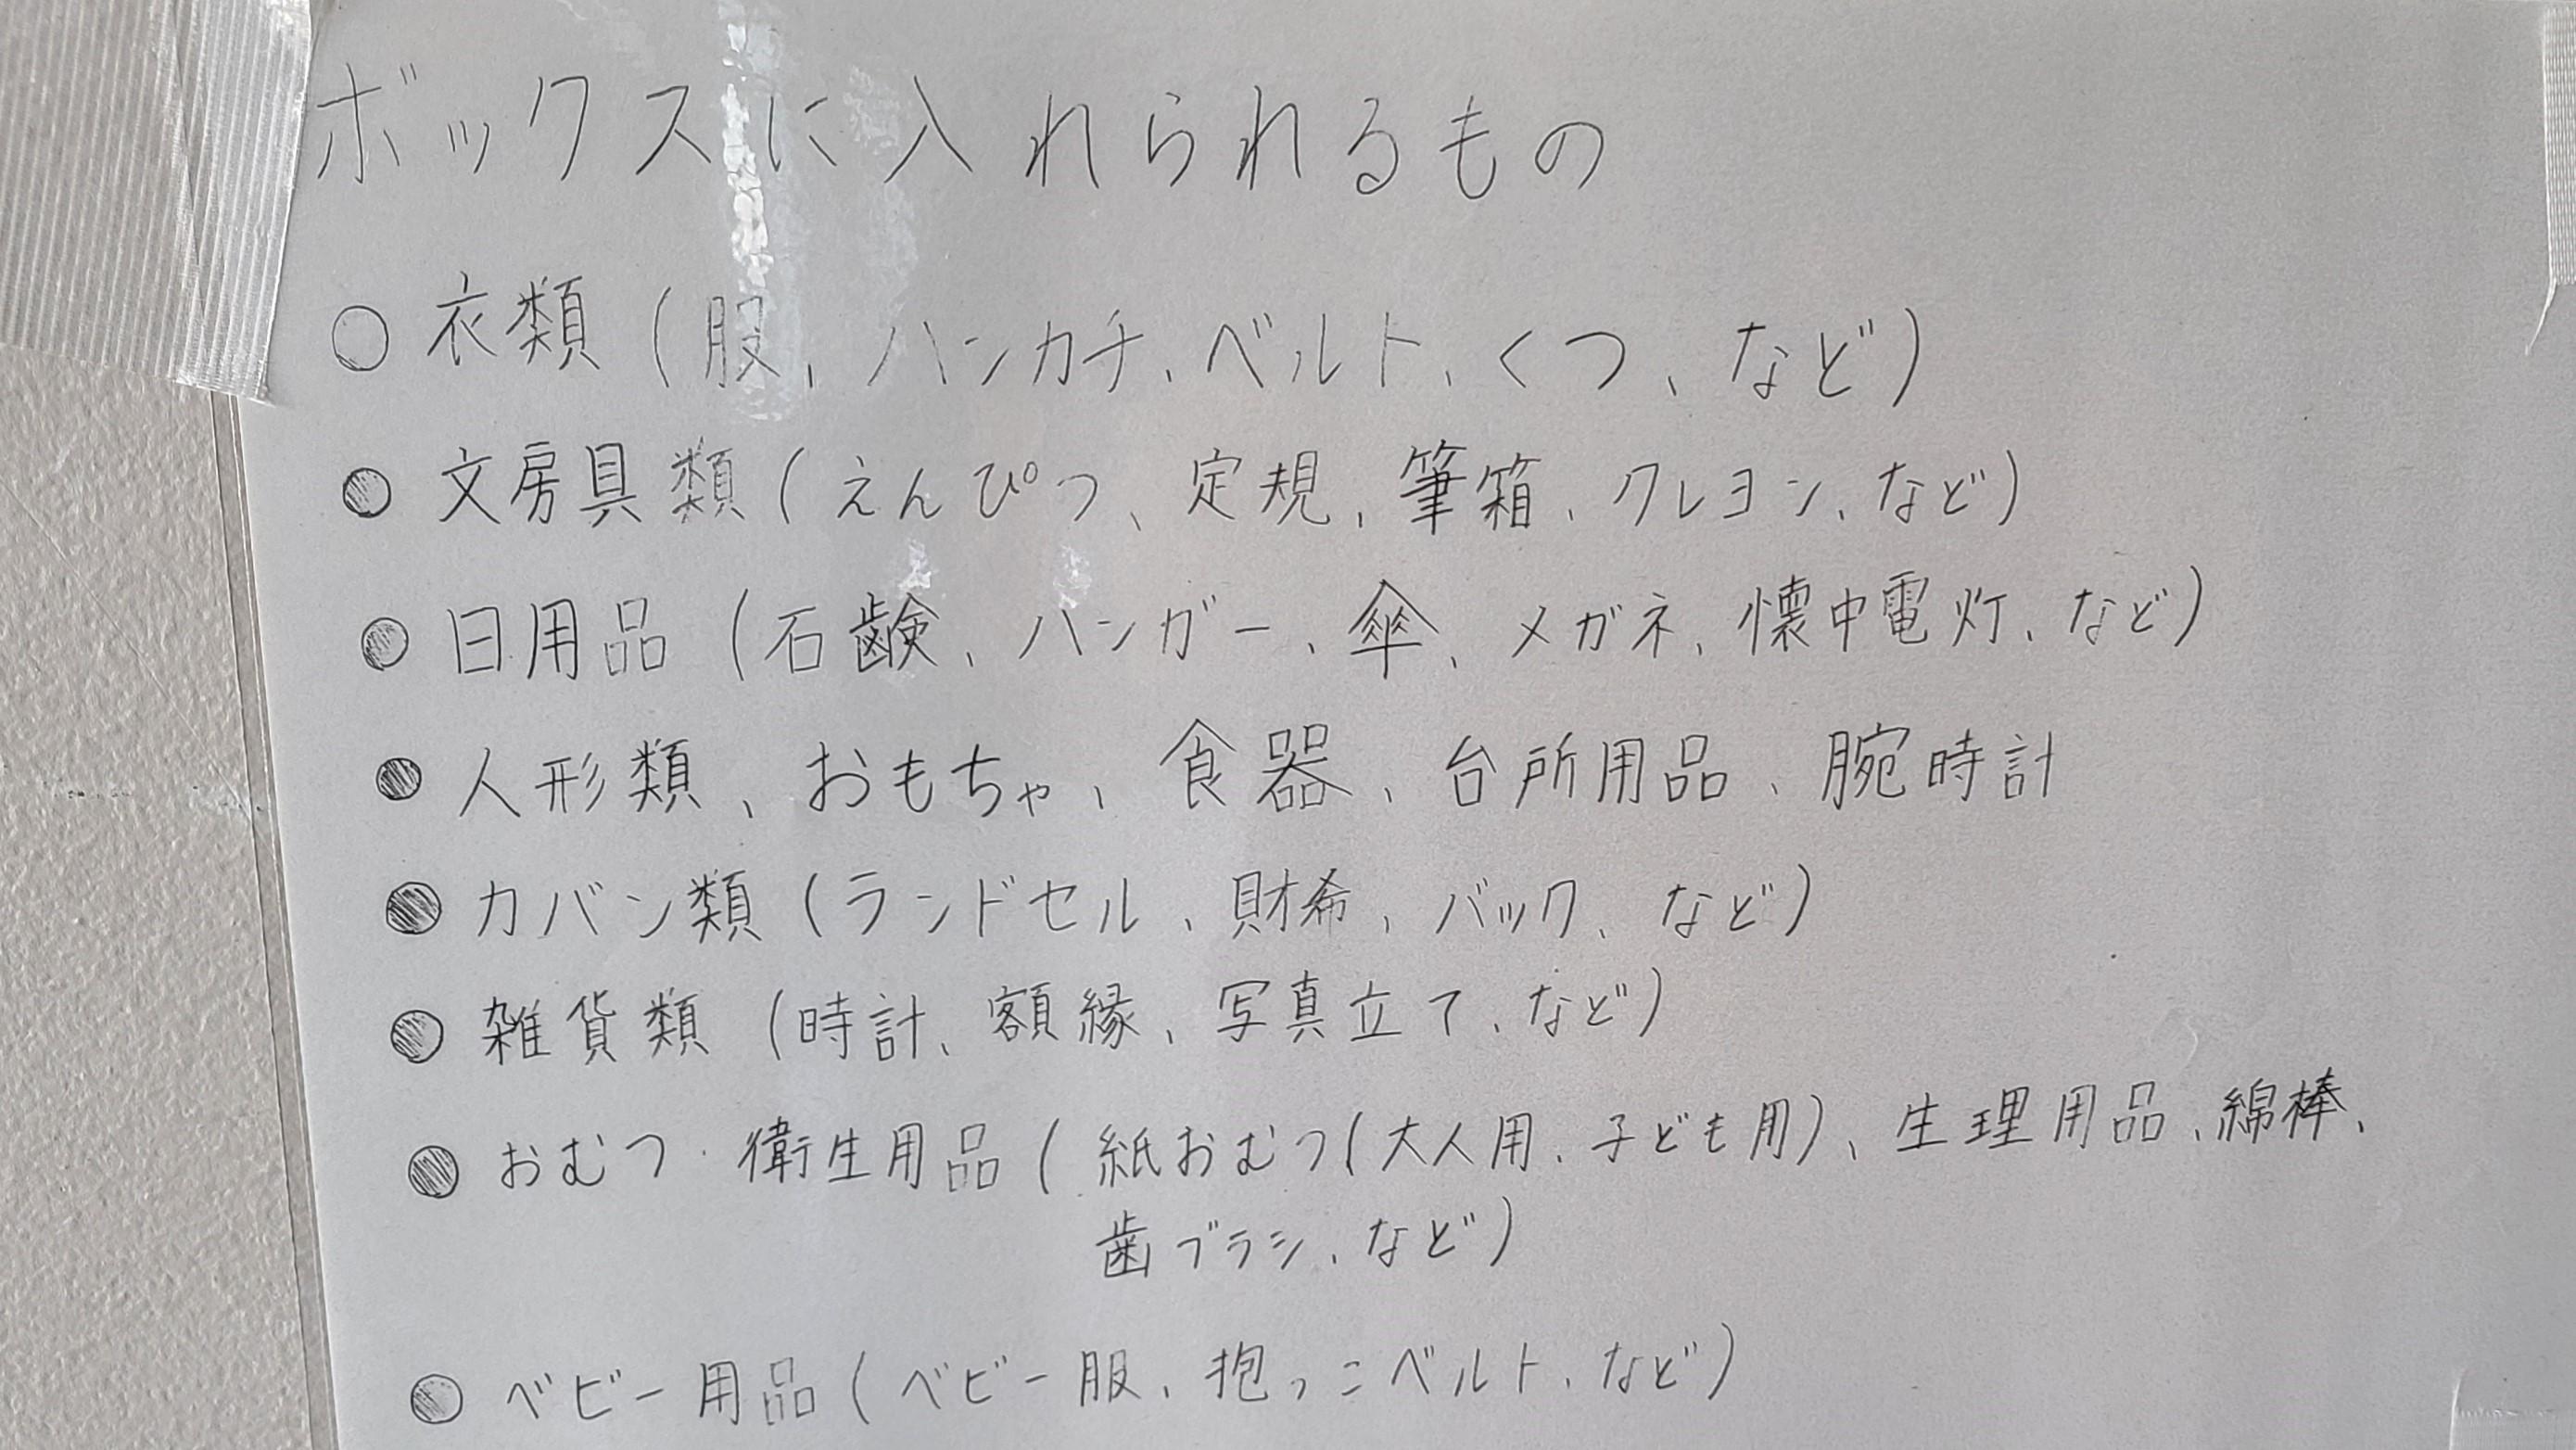 ボックスに入れられるもの
○ 衣類（服、ハンカチ、ベルト、くつ、など）
● 文房具類（えんぴつ、定規、筆箱、クレヨン、など）
● 日用品（石鹸、ハンガー、傘、メガネ、懐中電灯、など）
● 人形類、おもちゃ、食器、台所用品、腕時計
● カバン類（ランドセル、財希、バック、など）
● 雑貨類（時計、額縁、写真立て、など）
● おむつ・衛生用品（紙おむつ（大人用、子ども用）、生理用品、綿棒、
歯ブラシ、など）
● ベビー用品（ベビー服、抱っこベルト、など）